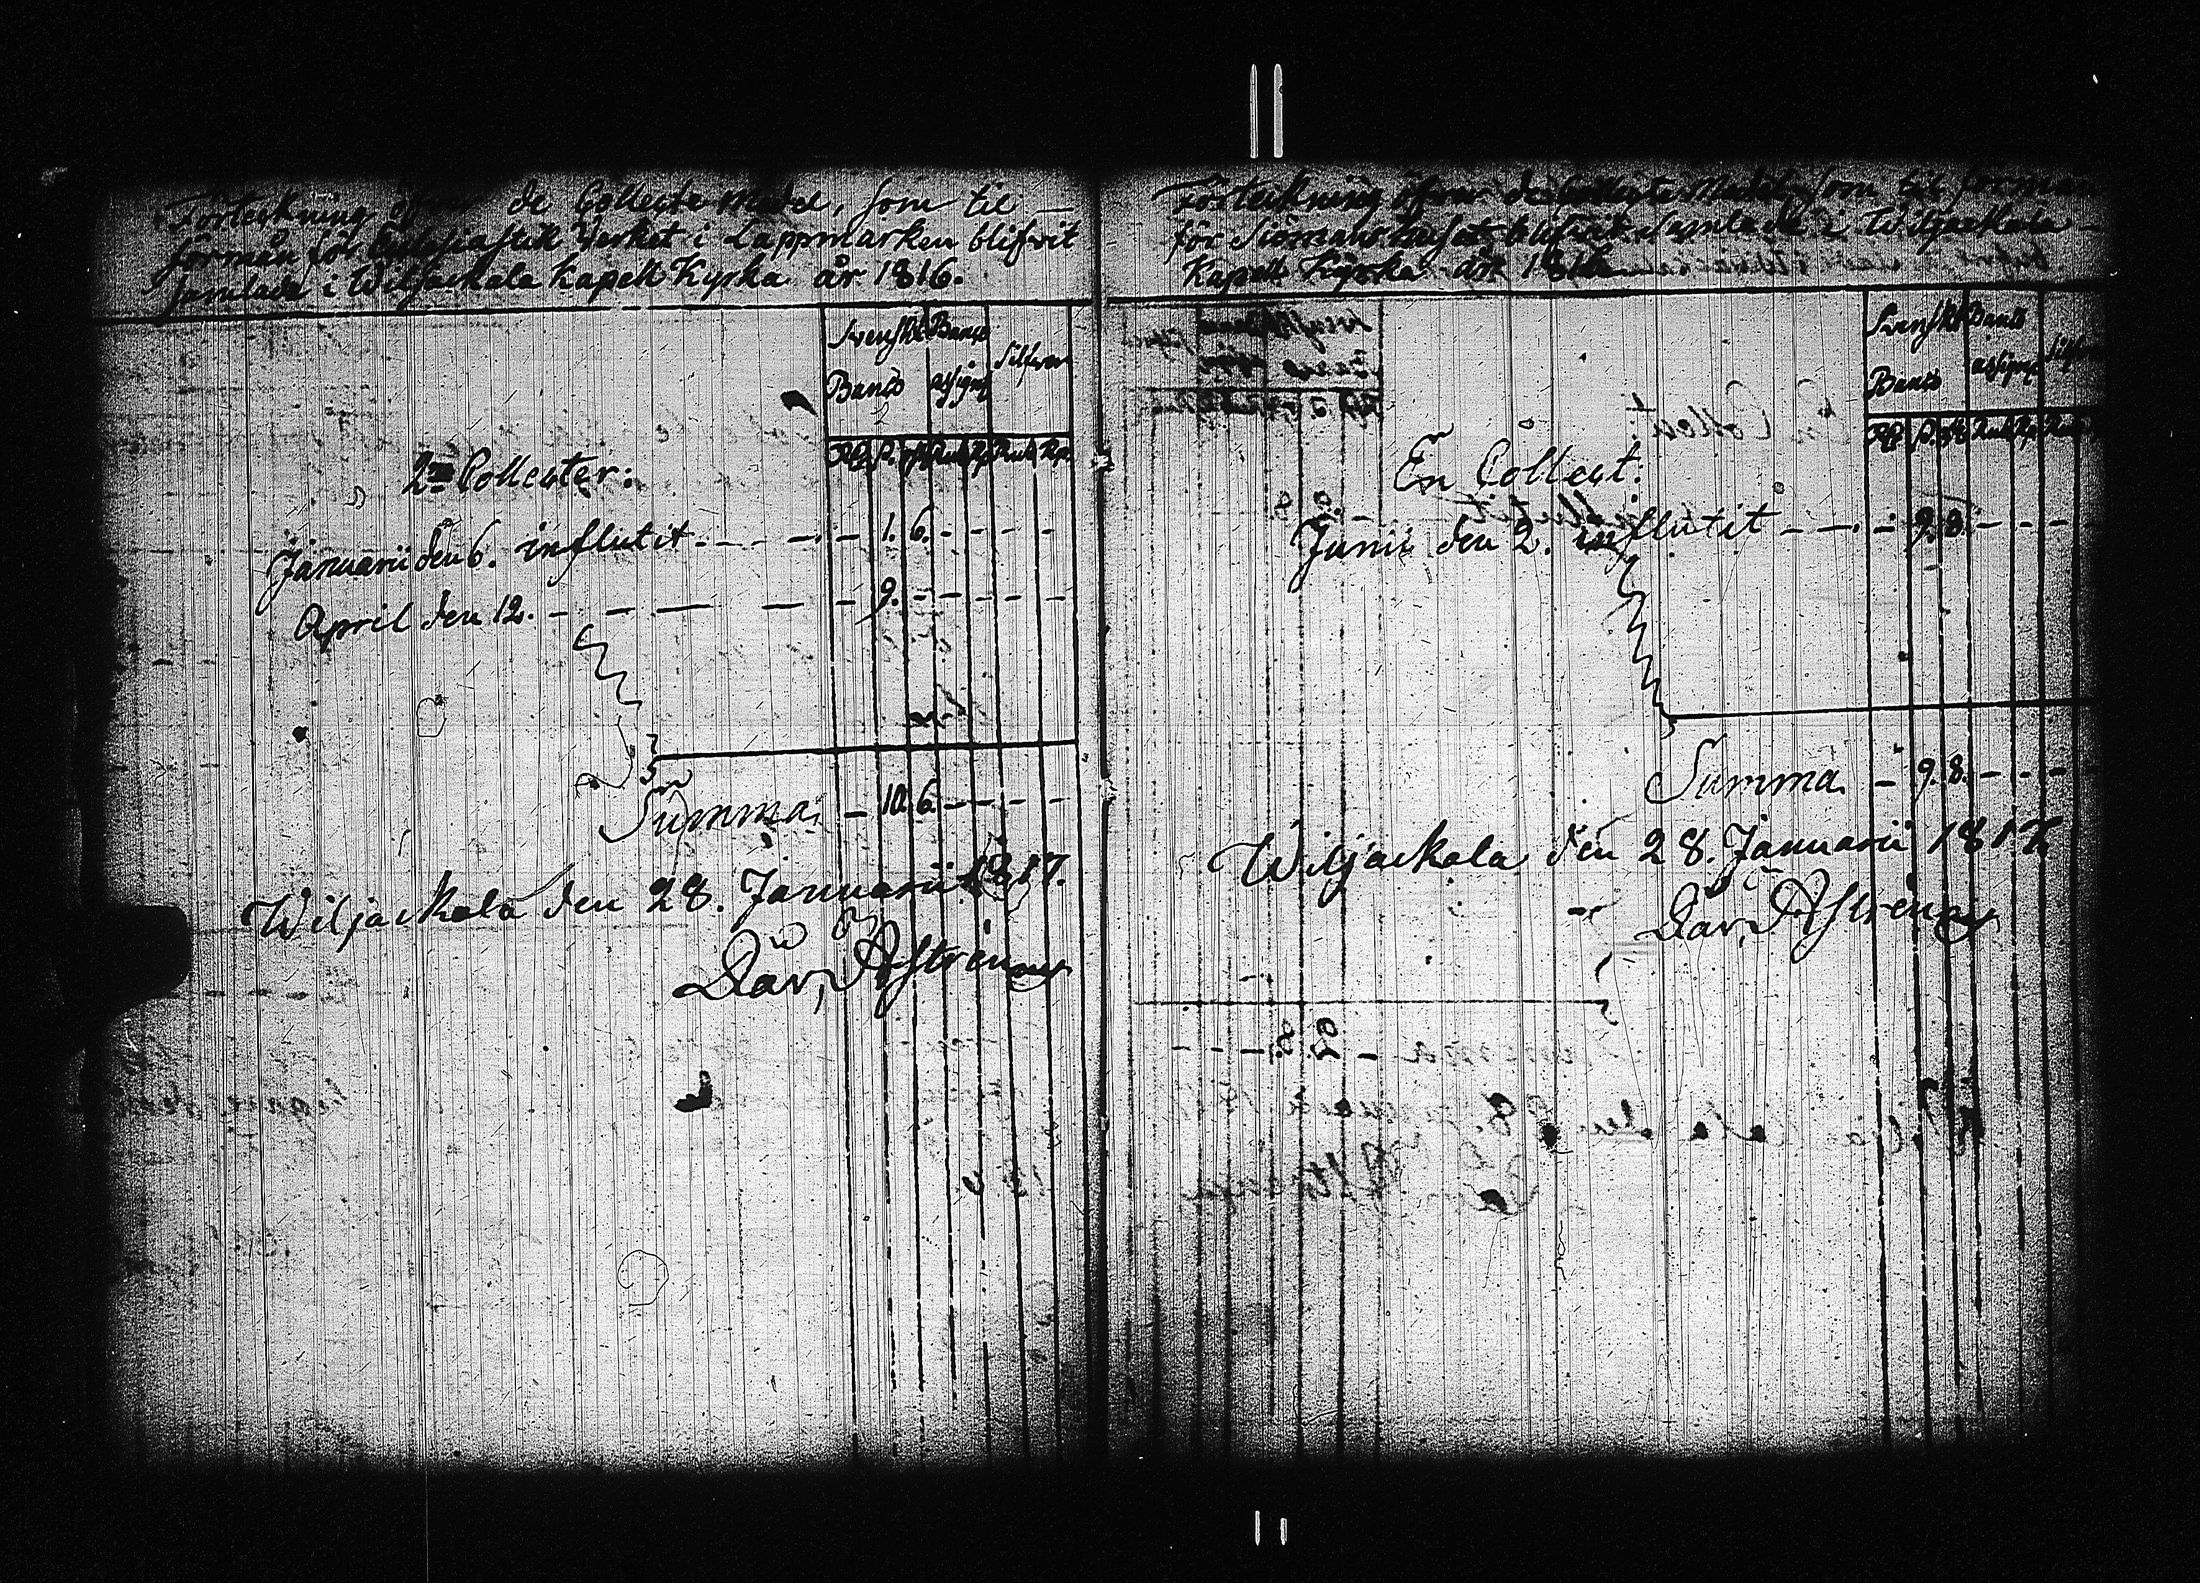 Förteckning öfver de Collecte Medel, som til
förmån för Ecclesiastik Verket i Lappmarken blifvit
samlade i Wiljackala Kapell Kyrka år 1816.
Svenskt Banco Silfver
Banco assign
Rd. s. rst Rub Kp Rub Kp.
2ne Collecter:
Januarii den 6. influtit - - - - - 1. 6. - - - -
April den 12. - - - - - 9. - - - - -
Summa - 10. 6. - - - -
Wiljackala den 28. Januarii 1817.
Dav. Astrenius
Förteckning öfver de Collecte Medel, som til förmån
för Siömans Huset blifvit samlade i Wiljackala
Kapell Kyrka år 1816
Svenskt Banco Silfver
Banco assign
Rd. s. rst Rub Kp. Rub
En Collect:
Junii den 2. influtit - - - 9. 8. - - - -
Summa - 9. 8. - - - -
Wiljackala den 28. Januarii 1817.
Dav. Astrenius